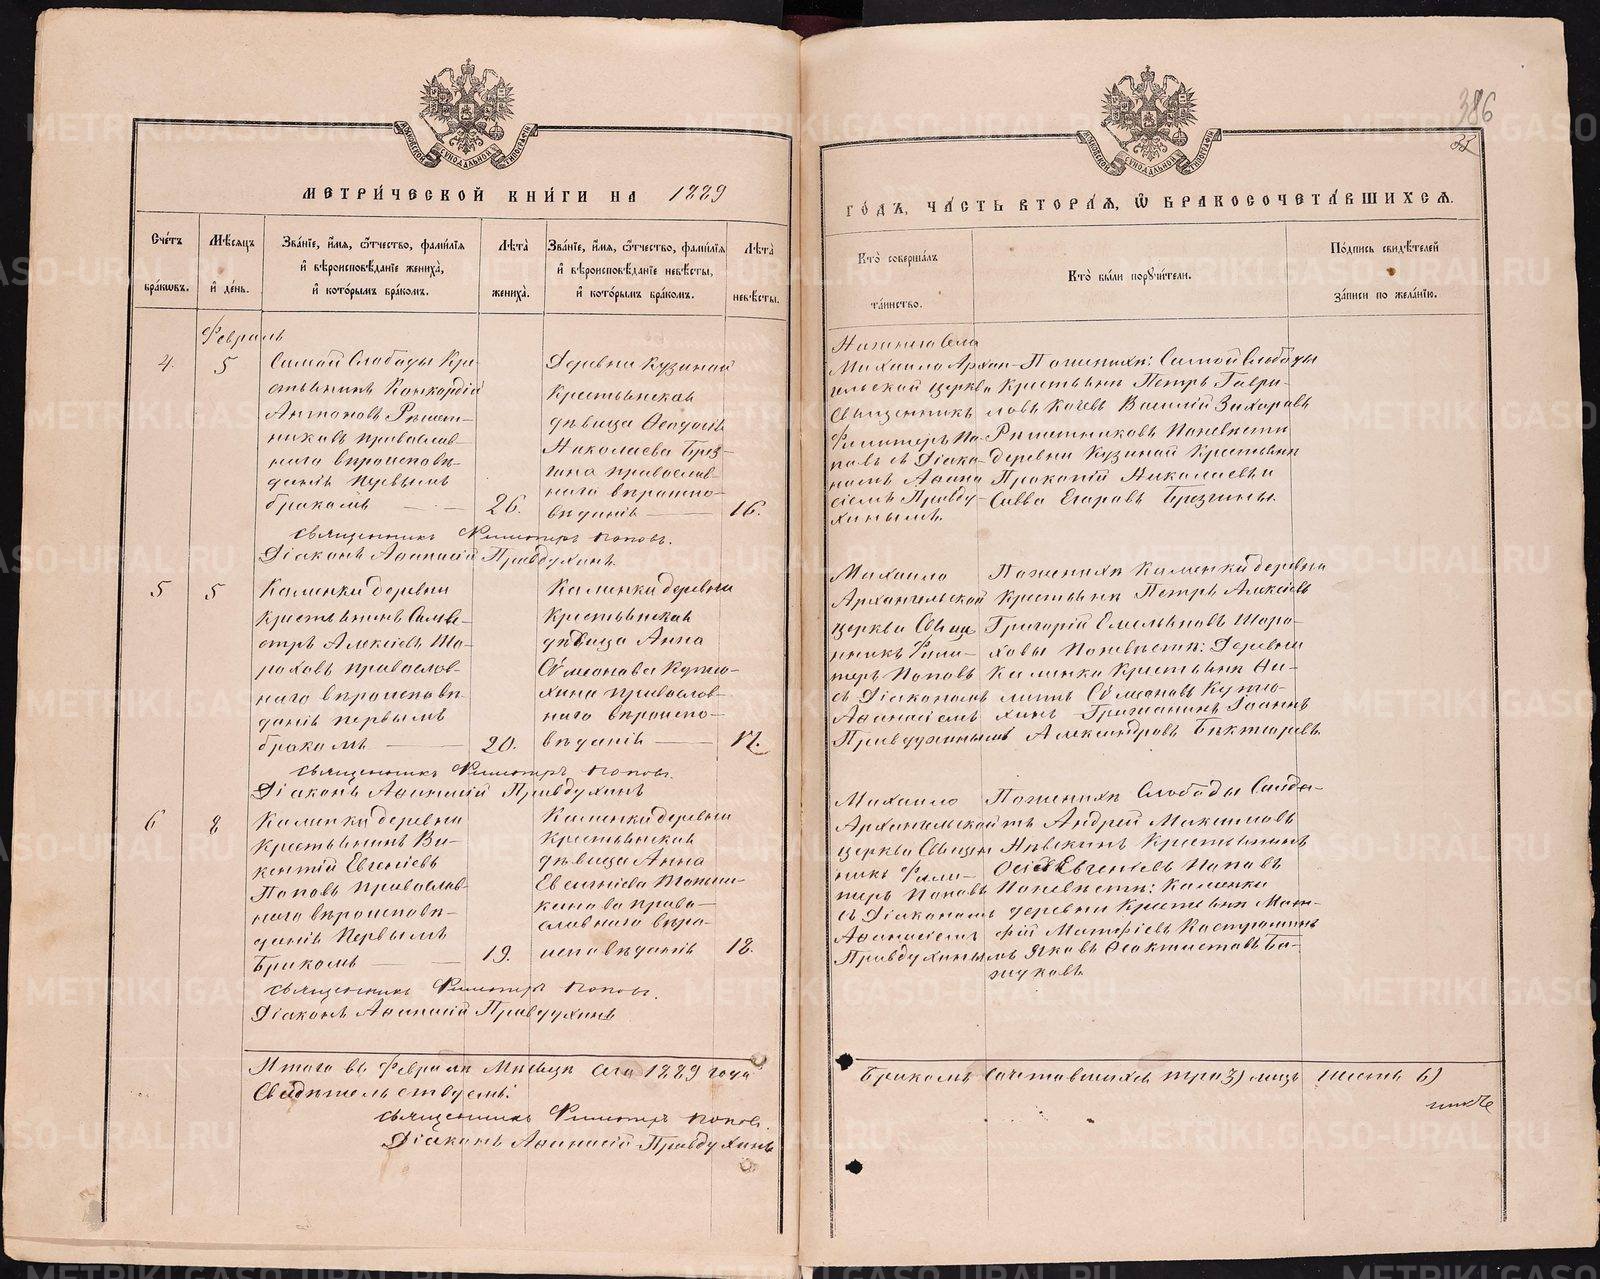 386
МЕТРИ́ЧЕСКОЙ КНИ́ГИ НА 1889
ГО́ДЪ, ЧА́СТЬ ВТОРА́Я, Ѡ БРАКОСОЧЕТА́ВШИХСЯ.
МОСКОВСКОЙ СѴНОДАЛЬНОЙ ТИПОГРАФІИ
МОСКОВСКОЙ СѴНОДАЛЬНОЙ ТИПОГРАФІИ
Сче́тъ бра́кѡвъ.
Мѣ́сяцъ и҆ де́нь.
Зва́нїе, и҆́мя, ѻ҆́тчество, фами́лїя и҆ вѣроисповѣ́данїе жениха̀, и҆ кото́рымъ бра́комъ.
Лѣта̀ жениха̀.
Зва́нїе, и҆́мя, ѻ҆́тчество, фами́лїя и҆ вѣроисповѣ́данїе невѣ́сты, и҆ кото́рымъ бра́комъ.
Лѣта̀ невѣ́сты.
Кто̀ соверша́лъ та́инство.
Кто̀ бы́ли порꙋчи́тели.
По́дпись свидѣ́телей за́писи по жела́нїю.
Февраль
4. 5
Самой Слободы Кре-
стьянинъ Конкордій
Антоновъ Решет-
никовъ православ-
наго вѣроисповѣ-
данія первымъ
бракомъ 26.
Деревни Кузиной
Крестьянская
дѣвица Ѳеодосія
Николаева Брез-
гина православ-
наго вѣроиспо-
вѣданія 16.
Нижняго Села
Михаило Архан-
гельской церкви
Священникъ
Филитеръ По-
повъ съ Діако-
номъ Аѳана-
сіемъ Правду-
хинымъ.
По женихѣ: Самой Слободы
Крестьяне Петръ Гаври-
ловъ Качевъ Василій Захаровъ
Решетниковъ По невѣстѣ
деревни Кузиной Крестьяне
Прокопій Николаевъ и
Савва Егоровъ Брезгины.
Священникъ Филитеръ Поповъ.
Діаконъ Аѳанасій Правдухинъ.
5 5
Каменки деревни
Крестьянинъ Сильве-
стръ Алексіевъ Шо-
роховъ православ-
наго вѣроисповѣ-
данія первымъ
бракомъ 20.
Каменки деревни
Крестьянская
дѣвица Анна
Сѵмеонова Кутю-
хина православ-
наго вѣроиспо-
вѣданія 17.
Михаило
Архангельской
церкви Свяще
нникъ Фили-
теръ Поповъ
съ Діакономъ
Аѳанасіемъ
Правдухинымъ
По женихѣ Каменки деревни
Крестьяне Петръ Алексіевъ
Григорій Емельяновъ Шоро-
ховы По невѣстѣ: Деревни
Каменки Крестьяне
Сѵмеоновъ Кутю-
хинъ Гражданинъ Іоаннъ
Александровъ Бехтеревъ
Священникъ Филитеръ Поповъ.
Діаконъ Аѳанасій Правдухинъ
6 8
Каменки деревни
Крестьянинъ Ви-
кентій Евгеніевъ
Поповъ православ-
наго вѣроисповѣ-
данія Первымъ
Бракомъ 19.
Каменки деревни
Крестьянская
дѣвица Анна
Евгеніева
православнаго вѣро-
исповѣданія 18.
Михаило
Архангельской
церкви Священ
никъ Фили-
теръ Поповъ
съ Діакономъ
Аѳанасіемъ
Правдухинымъ
По женихѣ Слободы Солда-
тъ Андрей Максимовъ
Крестьянинъ
Евгеніевъ Поповъ
По невѣстѣ: Каменки
деревни Крестьяне Мат-
фій Матфіевъ Костроминъ
Яковъ Ѳеоктистовъ Ба-
жуковъ
Священникъ Филитеръ Поповъ.
Діаконъ Аѳанасій Правдухинъ
Итого въ Февралѣ Мѣсяцѣ сего 1889 года
Бракомъ сочетавшихся три 3) лицъ шесть 6)
Свидѣтельствуемъ:
Священникъ Филитеръ Поповъ.
Діаконъ Аѳанасій Правдухинъ
METRIKI.GASO-URAL.RU